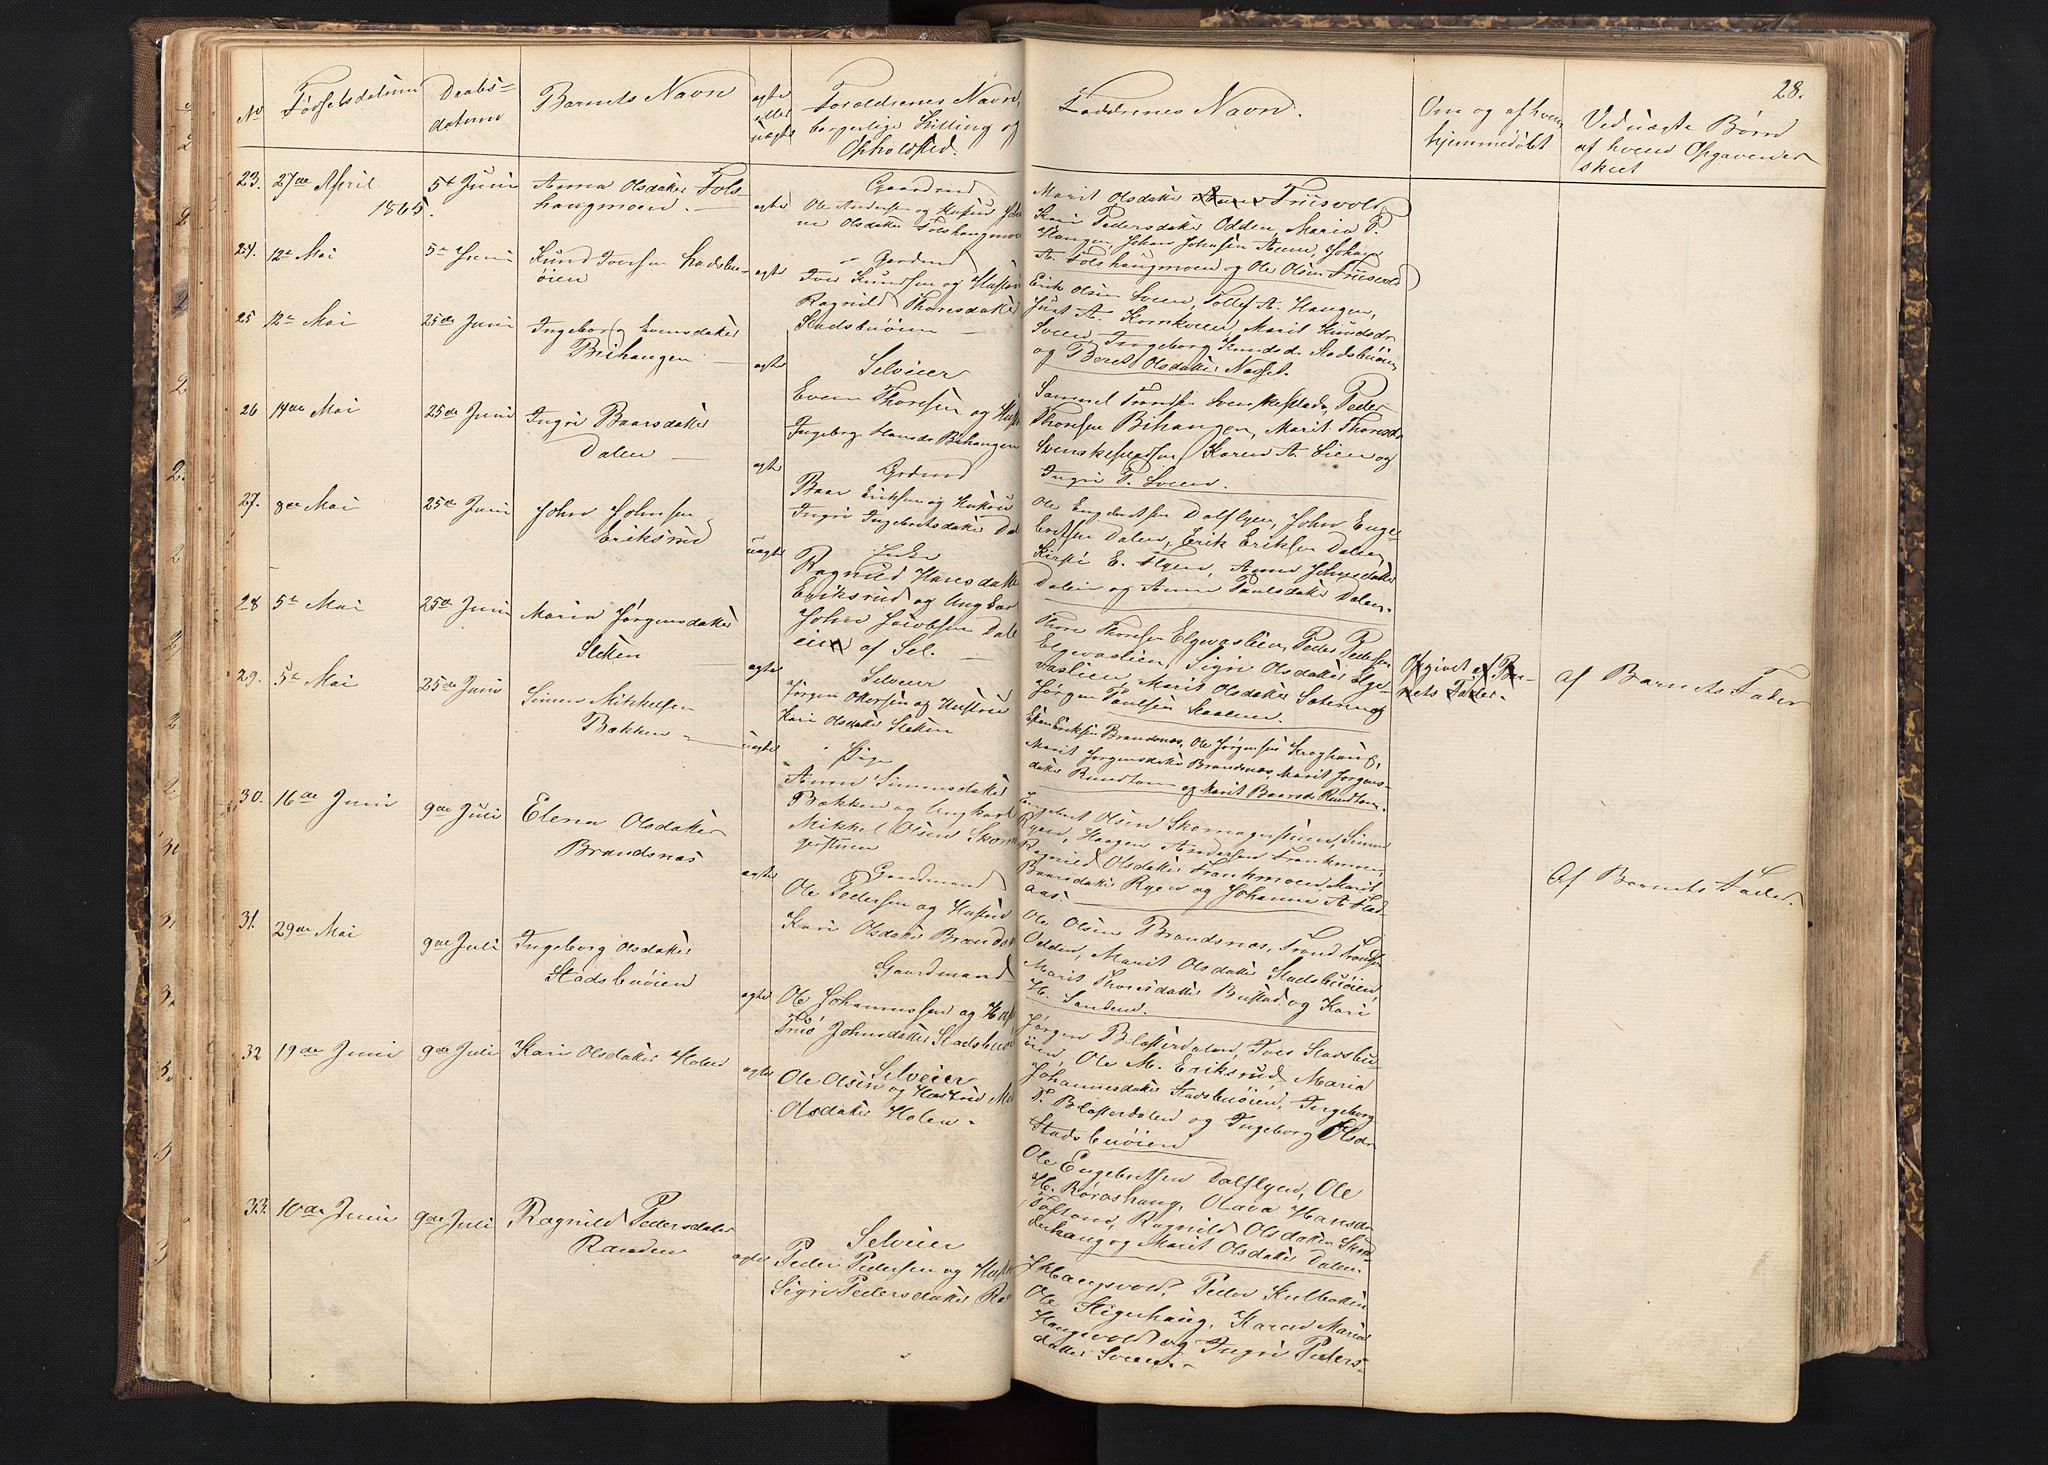 28.
No
Fødselsdatum
Daabs-
datum
Barnets Navn
ægte
eller
uægte
Forældrenes Navn,
borgerlige Stilling og
Opholdsted.
Faddrenes Navn.
Om og af hvem
hjemmedøbt
Ved uægte Børn
af hvem Opgaven er
skeet
23. 27de April
1865.
5te Juni
Anna Olsdatter Tols-
haugmoen.
ægte
Gaardmd
Ole Andersen og Hustrue Joha-
ne Olsdatter Tolshaugmoen
Marit Olsdatter Friisvold,
Kari Pedersdatter Odden, Maria P.
Haugen, Johan Johnsen Aaen, Johan
A. Tolshaugmoen og Ole Olsen Friisvold
24. 12te Mai
5te Juni
Knud Iversen Stadsbu-
øien
ægte
Gaardmd
Iver Knudsen og Hustru
Ragnild Thoresdatter
Stadsbuøien
Erik Olsen Sveen, Tollef A. Haugen,
Just A. Kornkveen, Marit Knudsdr
Sveen, Ingeborg Knudsd. Stadsbuøien
og Beret Olsdatter Næsset.
25 12te Mai
25de Juni
Ingeborg Evensdatter
Brihaugen
ægte
Selveier
Even Thoresen og Hustr
Ingeborg Hansdr Brihaugen
Samuel Trondsen Svenskepladsen, Peder
Thoresen Bihaugen, Marit Thoresdr
Svenskepladsen, Karen A. Lien og
Ingri P. Sveen.
26 14de Mai
25de Juni
Ingri Baarsdatter
Dalen
ægte
Grdmd
Baar Eriksen og Hustru
Ingri Ingebretsdatter Dal
Ole Engebretsen Dalflyen, John Enge-
bretsen Dalen, Erik Eriksen Dalen
Kirsti E. Flyen, Anne Johnsdatter
Dalen og Anne Paulsdatter Dalen.
27. 8de Mai
25de Juni
John Johnsen
Eriksrud
uægte
Enke
Ragnild Hansdatter
Eriksrud og Ungkar
John Jacobsen Dal
eien af Sel.
Thore Thoresen Elgevaslien, Peder Pedersen
Elgevaslien, Sigri Olsdatter Elge-
vaslien, Marit Olsdatter Sæteren og
Jørgen Paulsen Skaalen.
Opgivet af Bar-
nets Fader.
Af Barnets Fader
28 5te Mai
25de Juni
Maria Jørgensdatter
Sletten
ægte
Selveier
Jørgen Ottersen og Hustrue
Kari Olsdatter Sletten
Esten Eriksen Brandsnæs, Ole Jørgensen Kroghaug,
Marit Jørgensdatter Brandsnæs, Marit Jørgens-
datter Rundtom og Marit Baarsdr Rundtom.
29. 5te Mai
25de Juni
Simen Mikkelsen
Bækken
uægte
Pige
Anne Simensdatter
Bækken og Ungkarl
Mikkel Olsen Skoma-
gerstuen
Engebret Olsen Skomagerstuen, Simen
Ryen, Haagen Andersen Frankmoen,
Ragnild Olsdatter Frankmoen, Marit
Baarsdatter Ryen og Johanne A. Flad-
aas.
Af Barnets Fader.
30. 16de Juni
9de Juli
Elena Olsdatter
Brandsnæs
ægte
Gaardmand
Ole Pedersen og Hustru
Kari Olsdatter Brands
Ole Olsen Brandsnæs, Trond Trondsen
Odden, Marit Olsdatter Stadsbuøien,
Marit Thoresdatter Bustad og Kari
H. Sanden.
31. 29de Mai
9de Juli
Ingeborg Olsdatter
Stadsbuøien
ægte
Gaardmand
Ole Johannessen og H
Friø Johnsdatter Stadsbuø
Jørgen Blæsterdalen, Iver Stadsbu-
øien, Ole M. Eriksrud, Maria
Johannesdatter Stadsbuøien, Ingeborg
T. Blæsterdalen og Ingeborg Olsdr
Stadsbuøien
32 19de Juni
9de Juli
Kari Olsdatter Holen
ægte
Selveier
Ole Olsen og Hustrue M
Olsdatter Holen.
Ole Engebretsen Dalflyen, Ole
H. Rørashaug, Olava Hansdr
Toftom, Ragnild Olsdatter
haug og Marit Olsdatter Dalen.
33. 10de Juni
9de Juli
Ragnild Pedersdatter
Randen
ægte
Selveier
Peder Pedersen og Hust
Sigri Pedersdatter Ra
J. Haugsvold, Peder Kulbotten
Ole Stigerhaug, Karen Maria
Haugsvold og Ingri Peders-
datter Sveen.